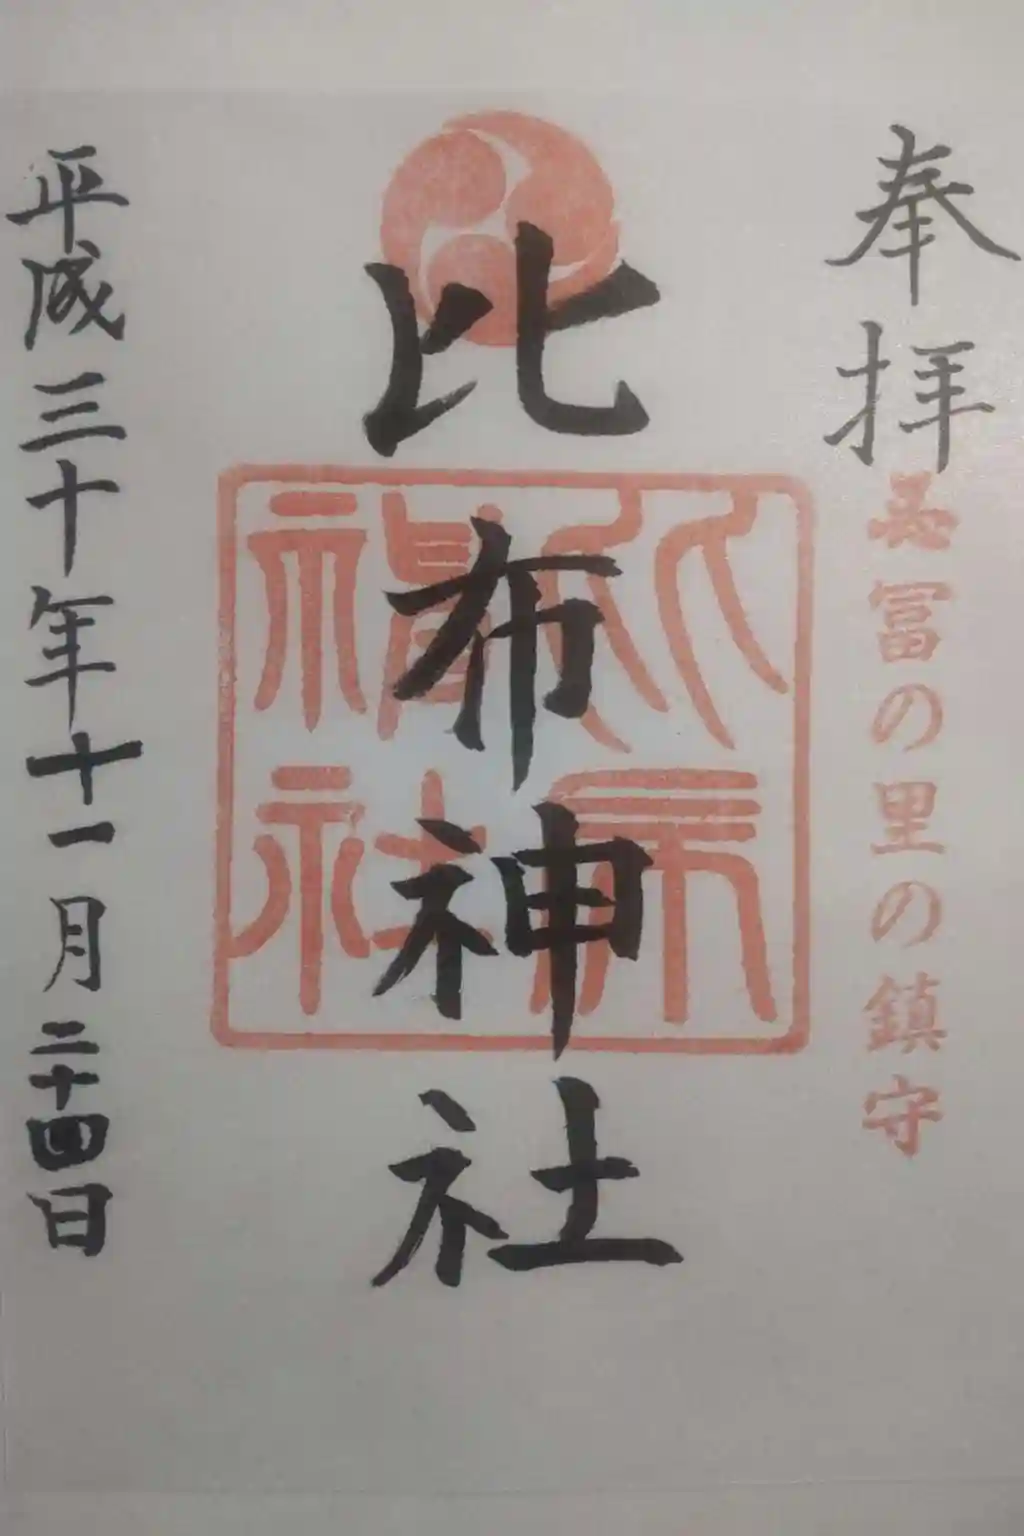 奉拝
冨の里の鎮守
比布神社
比布神社
平成三十年十一月二十四日